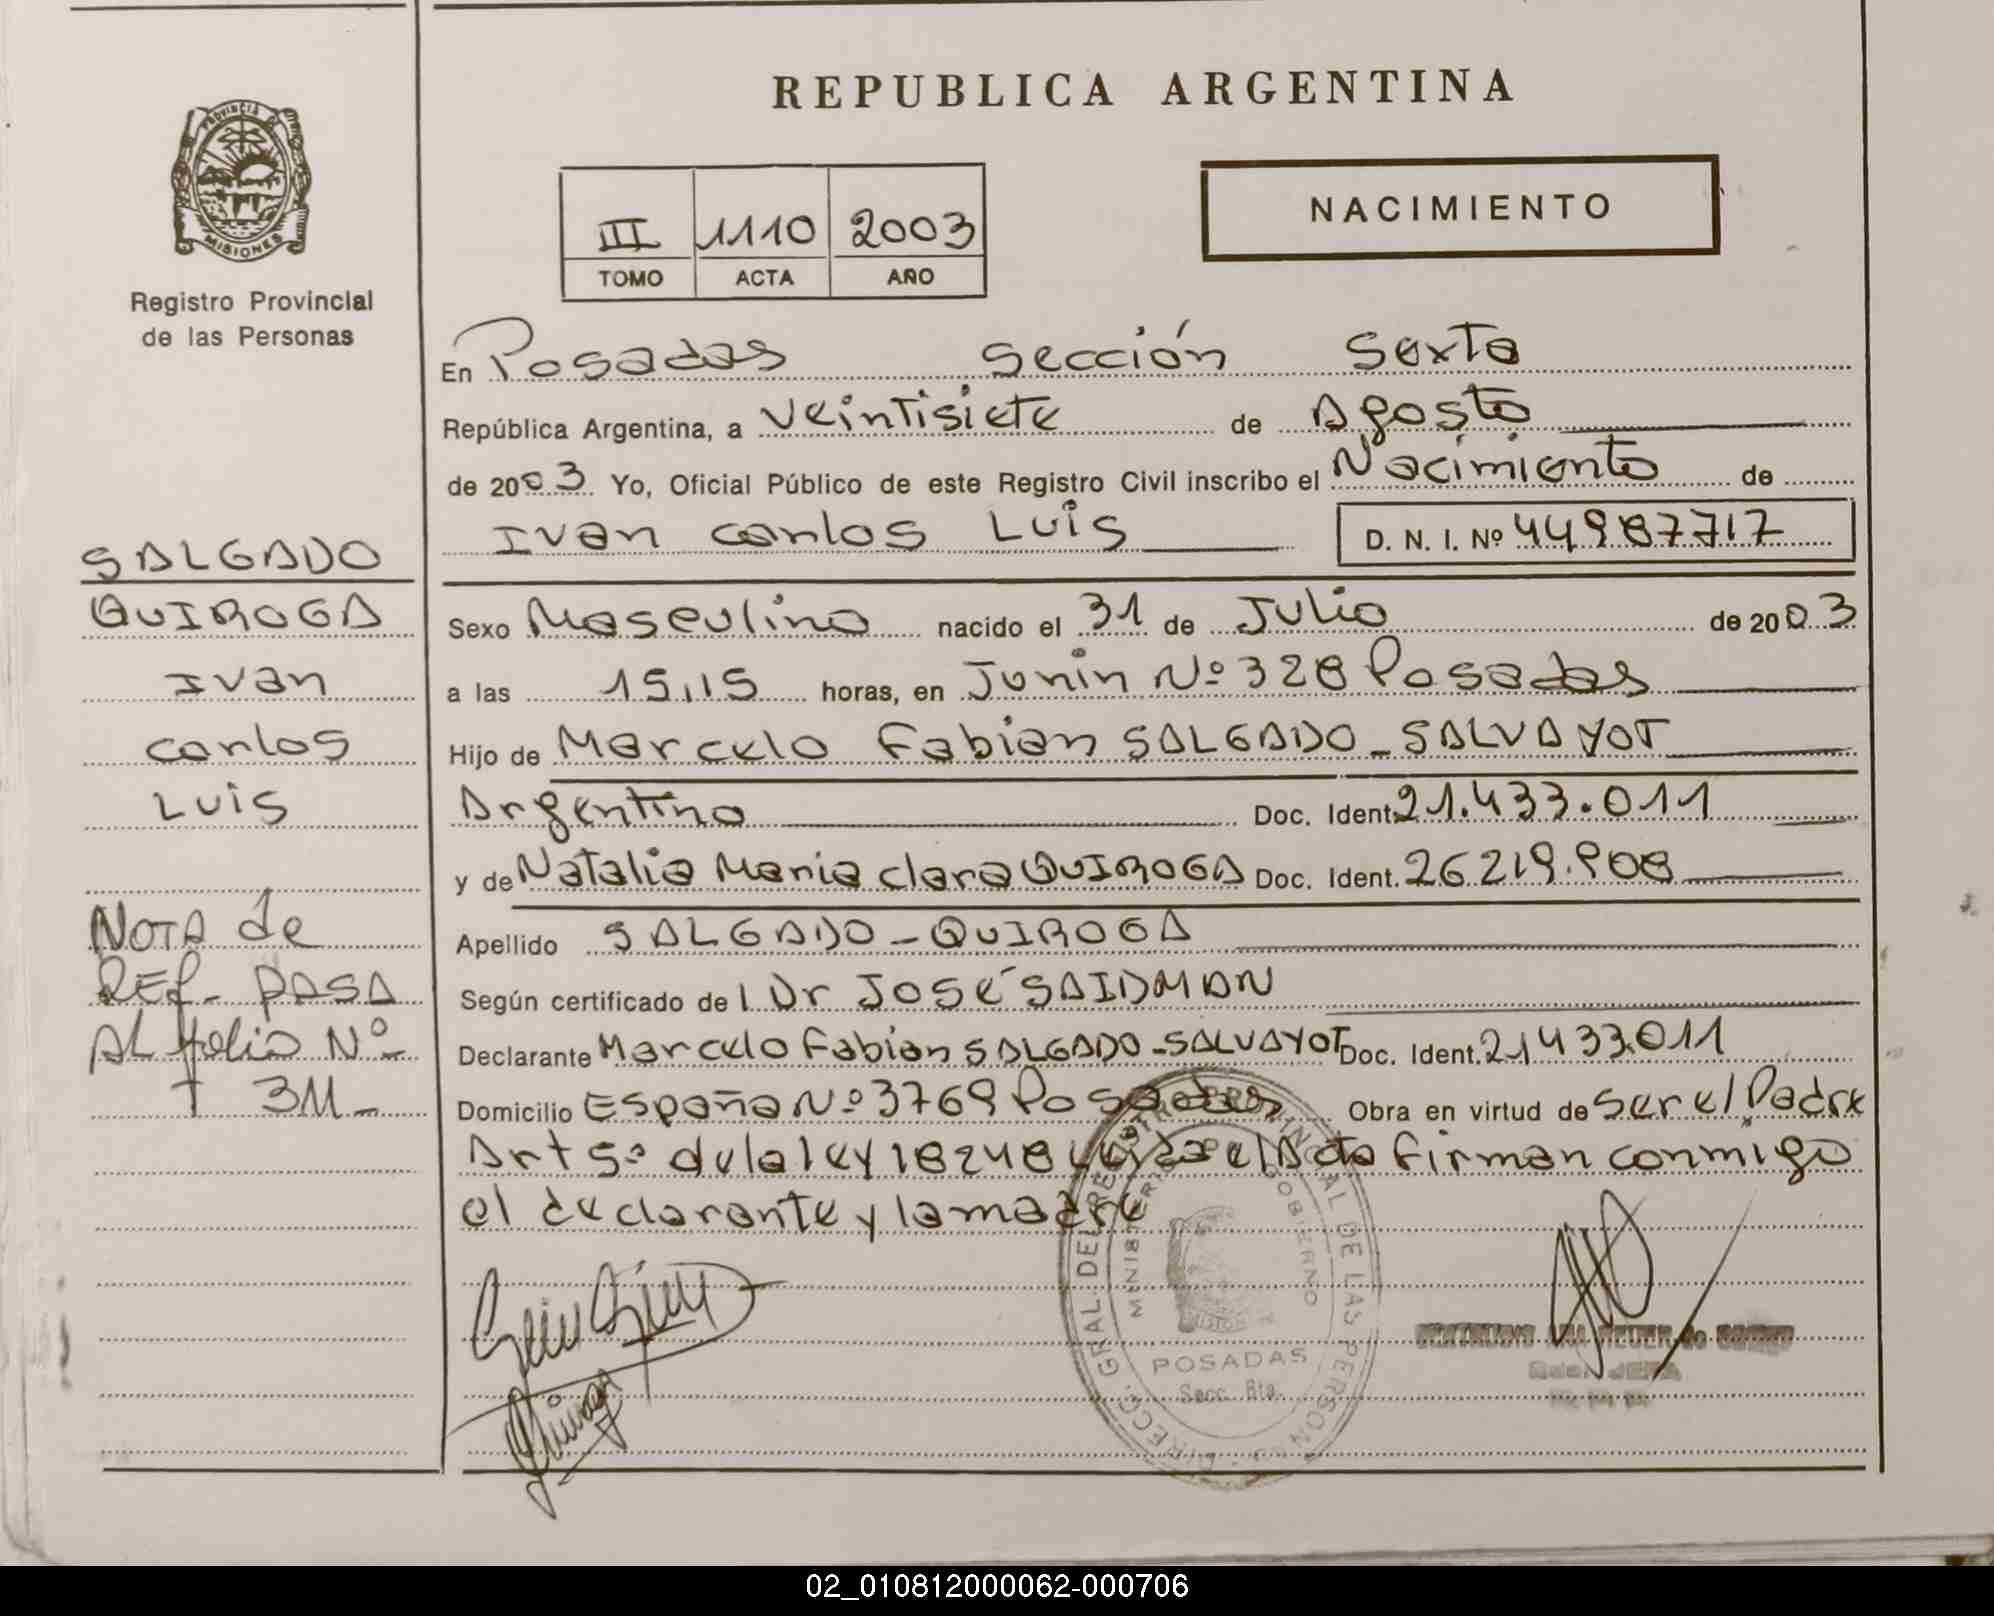 REPUBLICA ARGENTINA
PROVINCIA DE
MISIONES
Registro Provincial
de las Personas
III 1110 2003
TOMO ACTA AÑO
NACIMIENTO
En Posadas Sección Sexta
República Argentina, a Veintisiete de Agosto
de 2003 Yo, Oficial Público de este Registro Civil inscribo el Nacimiento de
Ivan Carlos Luis D. N. I. Nº 44987717
Sexo Masculino nacido el 31 de Julio de 2003
a las 15,15 horas, en Junin Nº 328 Posadas
Hijo de Marcelo Fabian SALGADO - SALVAYOT
Argentino Doc. Ident. 21.433.011
y de Natalia Maria Clara QUIROGA Doc. Ident. 26.219.908
Apellido SALGADO - QUIROGA
Según certificado de l Dr JOSÉ SAIDMAN
Declarante Marcelo Fabian SALGADO - SALVAYOT Doc. Ident. 21433.011
Domicilio España Nº 3769 Posadas Obra en virtud de ser el Padre
Art 5º de la ley 18248 Leída el Acta firman conmigo
el declarante y la madre
SALGADO
QUIROGA
Ivan
Carlos
Luis
NOTA de
REF - PASA
AL folio Nº
T 311 -
DIRECC. GRAL. DEL REGISTRO PROVINCIAL DE LAS PERSONAS
MINISTERIO GOBIERNO
POSADAS
Secc. 6ta.
02_010812000062-000706